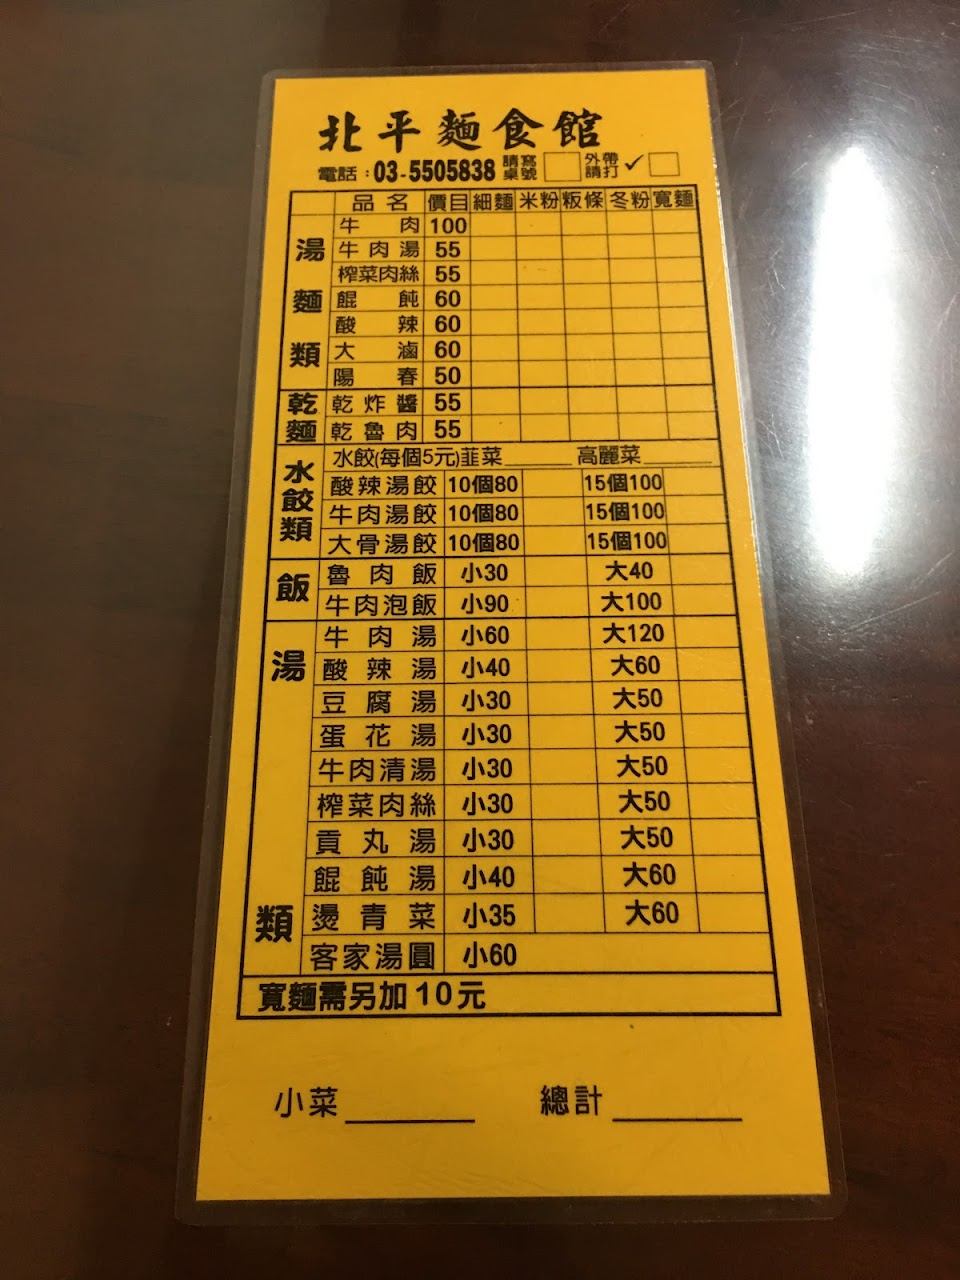 北平麵食館
電話：03-5505838 請寫桌號 外帶請打✓
品名 價目 細麵 米粉 粄條 冬粉 寬麵
湯麵類
牛肉 100
牛肉湯 55
榨菜肉絲 55
餛飩 60
酸辣 60
大滷 60
陽春 50
乾麵
乾炸醬 55
乾魯肉 55
水餃類
水餃(每個5元)韮菜______ 高麗菜______
酸辣湯餃 10個80 15個100
牛肉湯餃 10個80 15個100
大骨湯餃 10個80 15個100
飯
魯肉飯 小30 大40
牛肉泡飯 小90 大100
湯類
牛肉湯 小60 大120
酸辣湯 小40 大60
豆腐湯 小30 大50
蛋花湯 小30 大50
牛肉清湯 小30 大50
榨菜肉絲 小30 大50
貢丸湯 小30 大50
餛飩湯 小40 大60
燙青菜 小35 大60
客家湯圓 小60
寬麵需另加10元
小菜________ 總計________